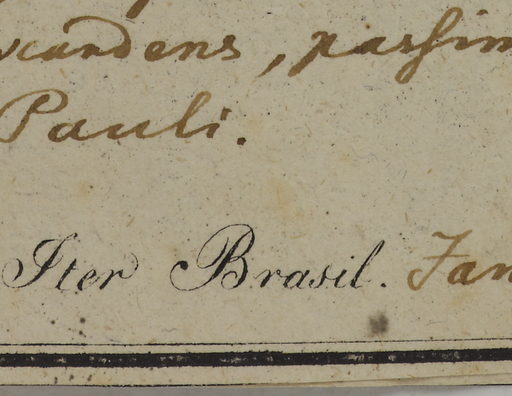 scandens, passim
Pauli.
Iter Brasil. Jan